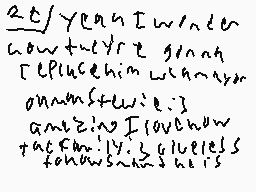 2E/ yeah I wonder
how they're gonna
replace him when mayor
on man stewie is
amazing I love how
the family is clueless
to how smart he is